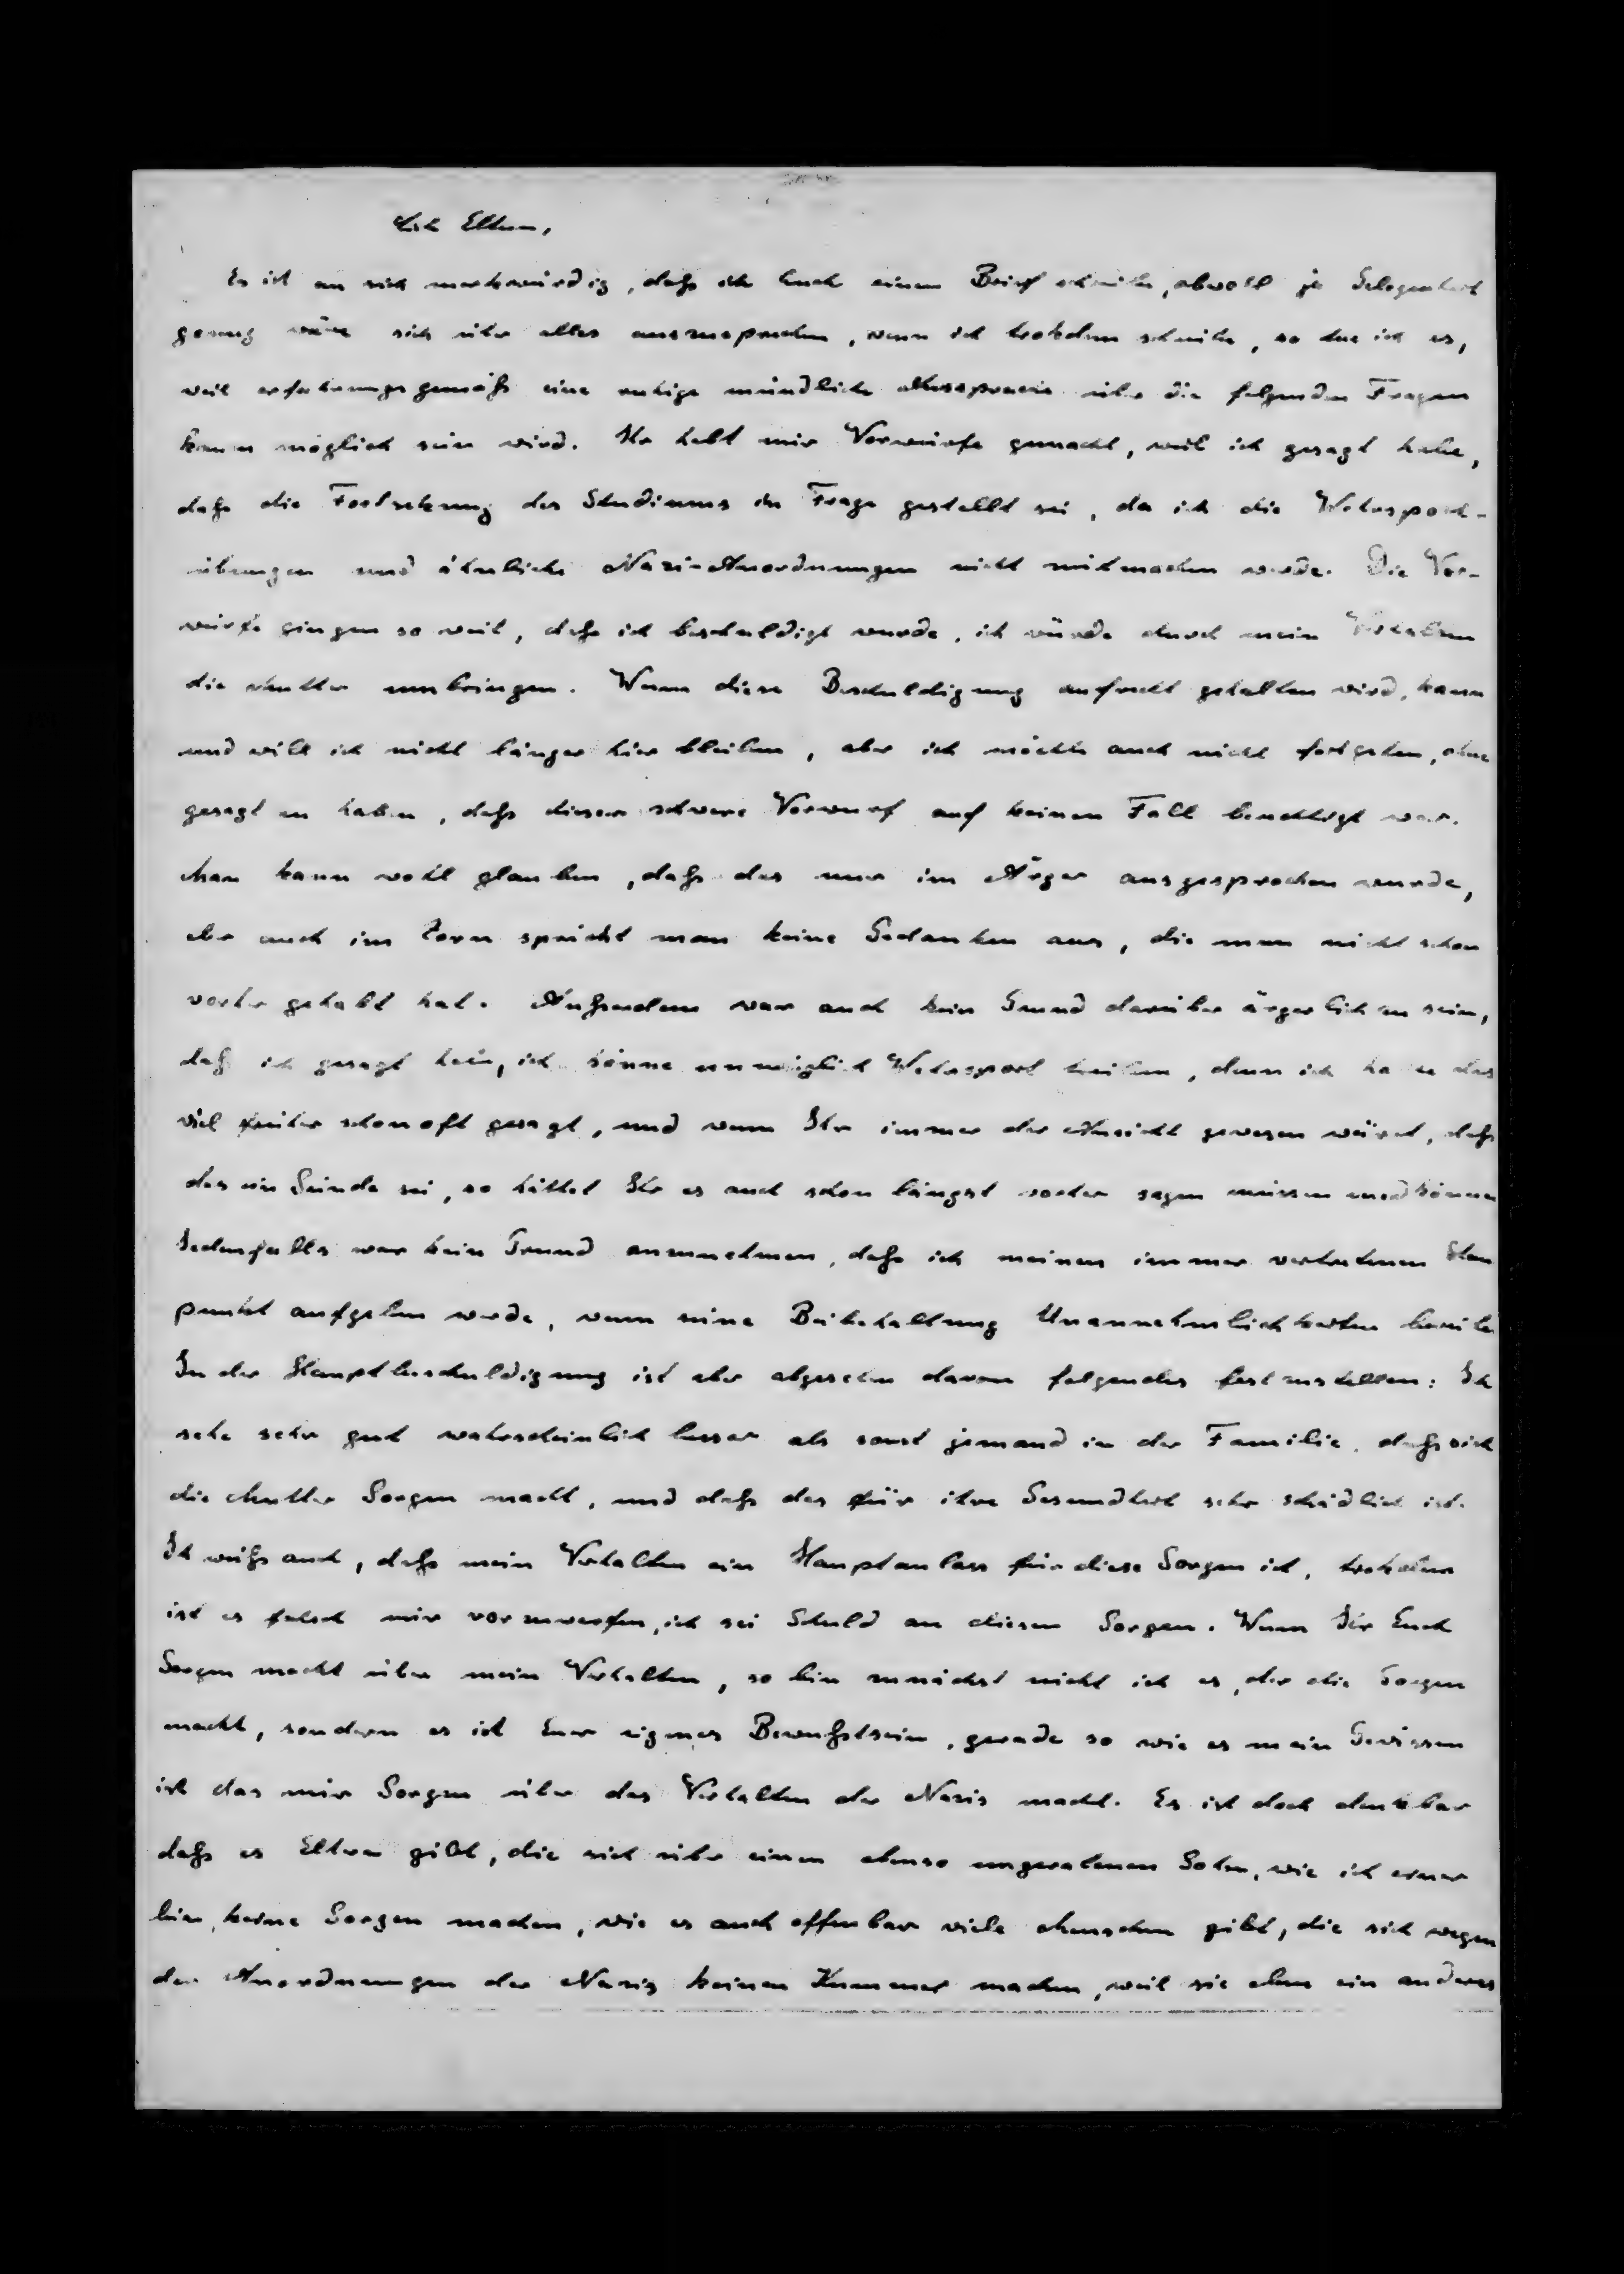 Liebe Eltern,
Es ist an sich merkwürdig, daß ich Euch einen Brief schreibe, obwohl ja Gelegenheit
genug wäre sich über alles auszusprechen, wenn ich trotzdem schreibe, so tue ich es,
weil erfahrungsgemäß eine ruhige mündliche Aussprache über die folgenden Fragen
kaum möglich sein wird. Ihr habt mir Vorwürfe gemacht, weil ich gesagt habe,
daß die Fortsetzung des Studiums in Frage gestellt sei, da ich die Wehrsport-
übungen und ähnliche Nazi-Anordnungen nicht mitmachen werde. Die Vor-
würfe gingen so weit, daß ich beschuldigt wurde, ich würde durch mein Verhalten
die Mutter umbringen. Wenn diese Beschuldigung aufrecht gehalten wird, kann
und will ich nicht länger hier bleiben, aber ich möchte auch nicht fortgehen, ohne
gesagt zu haben, daß dieser schwere Vorwurf auf keinen Fall berechtigt war.
Man kann wohl glauben, daß das nur im Ärger ausgesprochen wurde,
aber auch im Zorn spricht man keine Gedanken aus, die man nicht schon
vorher gehabt hat. Außerdem war auch kein Grund darüber ärgerlich zu sein,
daß ich gesagt habe, ich könne unmöglich Wehrsport treiben, denn ich habe das
viel früher schon oft gesagt, und wenn Ihr immer der Ansicht gewesen wäret, daß
das ein Sünde sei, so hättet Ihr es auch schon längst vorher sagen müssen und können
Jedenfalls war kein Grund anzunehmen, daß ich meinen immer vertretenen Stan
punkt aufgeben werde, wenn seine Beibehaltung Unannehmlichkeiten bereite
Zu der Hauptbeschuldigung ist aber abgesehen davon folgendes festzustellen: Ich
sehe sehr gut wahrscheinlich besser als sonst jemand in der Familie, daß sich
die Mutter Sorgen macht, und daß das für ihre Gesundheit sehr schädlich ist.
Ich weiß auch, daß mein Verhalten ein Hauptanlass für diese Sorgen ist, trotzdem
ist es falsch mir vorzuwerfen, ich sei Schuld an diesen Sorgen. Wenn Ihr Euch
Sorgen macht über mein Verhalten, so bin zunächst nicht ich es, der die Sorgen
macht, sondern es ist Euer eigenes Bewußtsein, gerade so wie es mein Gewissen
ist das mir Sorgen über das Verhalten der Nazis macht. Es ist doch denkbar
daß es Eltern gibt, die sich über einen ebenso ungeratenen Sohn, wie ich einer
bin, keine Sorgen machen, wie es auch offenbar viele Menschen gibt, die sich wegen
der Anordnungen der Nazis keinen Kummer machen, weil sie eben ein anderes